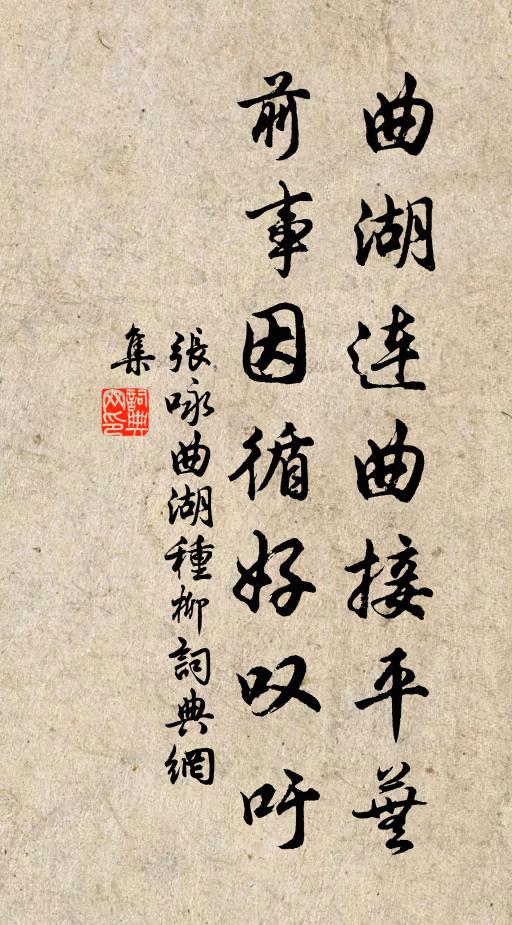 曲湖连曲接平蕪
前事因循好叹吁
張咏曲湖種柳詞典網
集
詞典
网印